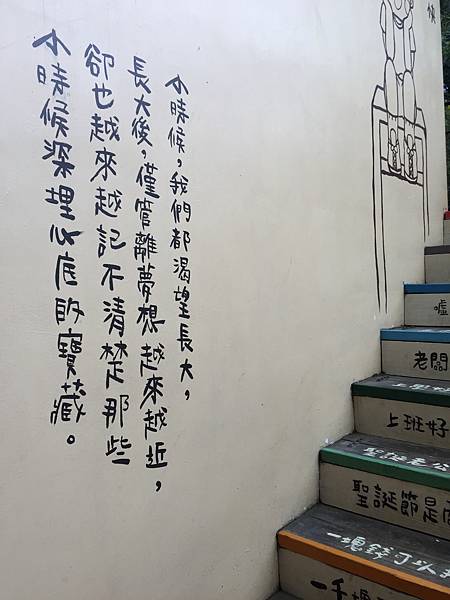 小時候，我們都渴望長大，
長大後，僅管離夢想越來越近，
卻也越來越記不清楚那些
小時候深埋心底的寶藏。
噓
老闆
上班好
聖誕老公
聖誕節是
一塊錢可以
一千塊